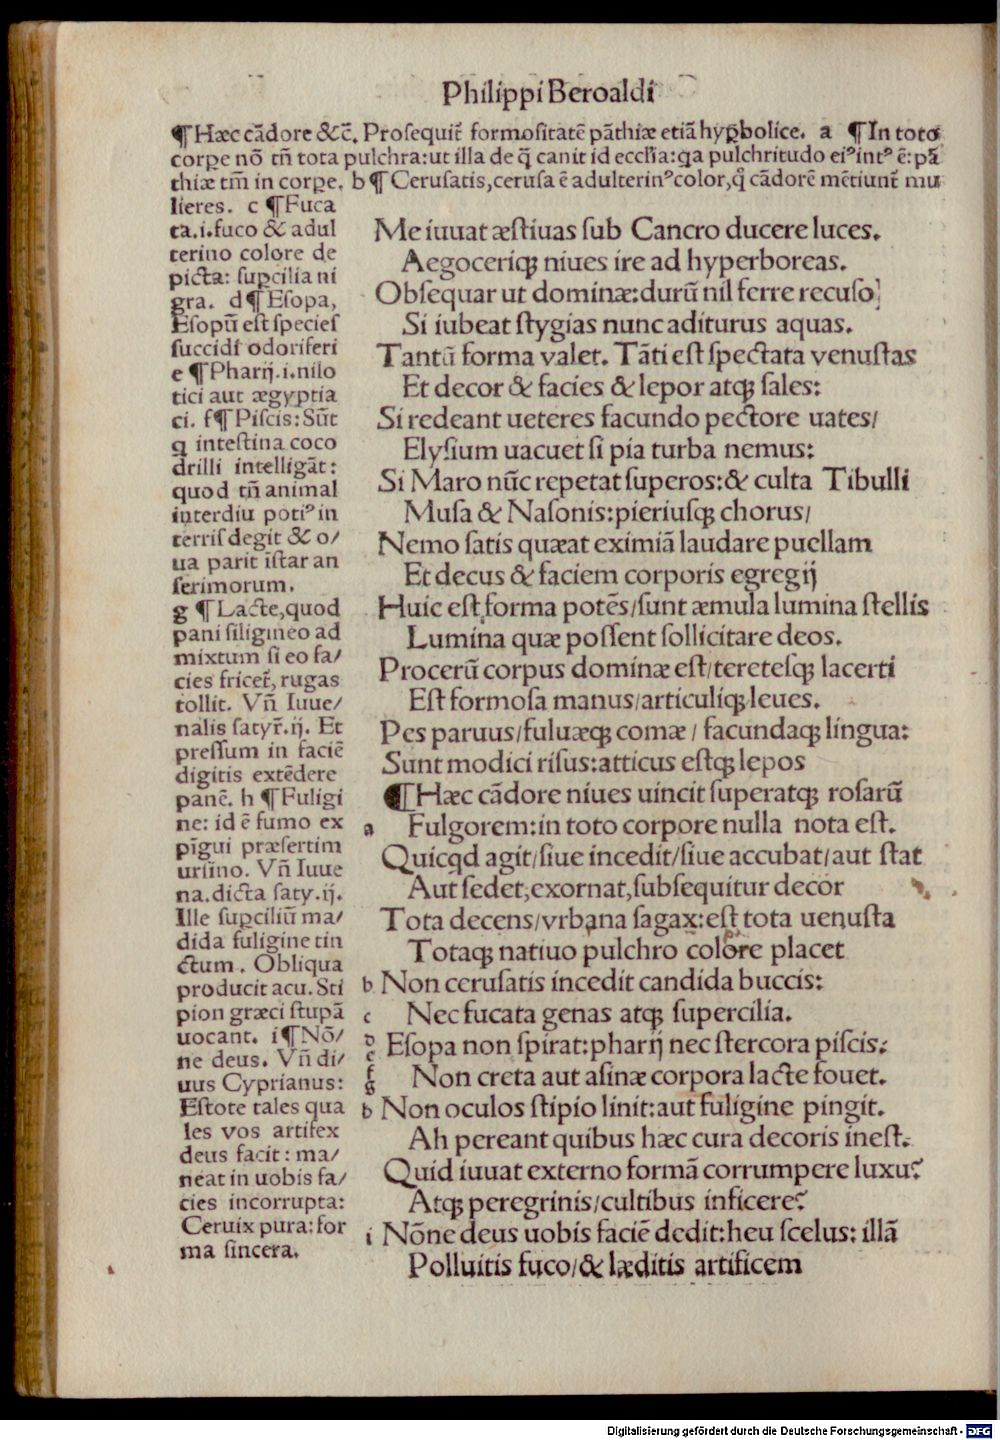 Philippi Beroaldi
¶Hæc cādore &c̄. Prosequit̄ formositatē pāthiæ etiā hyꝑbolice. a ¶In toto
corꝑe nō tn̄ tota pulchra:ut illa de q̄ canit id ecclīa:ꝗa pulchritudo eiꝰ intꝰ ē:pā
thiæ tm̄ in corꝑe. b ¶Cerusatis,cerusa ē adulterinꝰ color,q̄ cādorē mētiunt̄ mu
lieres. c ¶Fuca
ta.i.fuco & adul
terino colore de
picta: suꝑcilia ni
gra. d ¶Esopa,
Esopū est species
succidi odoriferi
e ¶Pharij.i.nilo
tici aut ægyptia
ci. f ¶Piscis:Sūt
q intestina coco
drilli intelligāt:
quod tn̄ animal
interdiu potiꝰ in
terris degit & o/
ua parit īstar an
serimorum.
g ¶Lacte,quod
pani siligineo ad
mixtum si eo fa/
cies fricet̄, rugas
tollit. Vn̄ Iuue/
nalis satyr̄.ij. Et
pressum in faciē
digitis extēdere
panē. h ¶Fuligi
ne: id ē fumo ex
pīgui præsertim
ursino. Vn̄ Iuue
na.dicta saty.ij.
Ille suꝑciliū ma/
dida fuligine tin
ctum. Obliqua
producit acu. Sti
pion græci stupā
uocant. i ¶Nō/
ne deus. Vn̄ di/
uus Cyprianus:
Estote tales qua
les vos artifex
deus facit: ma/
neat in uobis fa/
cies incorrupta:
Ceruix pura: for
ma sincera.
Me iuuat æstiuas sub Cancro ducere luces.
Aegoceriqꝫ niues ire ad hyperboreas.
Obsequar ut dominæ:durū nil ferre recuso
Si iubeat stygias nunc aditurus aquas.
Tantū forma valet. Tāti est spectata venustas
Et decor & facies & lepor atqꝫ sales:
Si redeant ueteres facundo pectore uates/
Elysium uacuet si pia turba nemus:
Si Maro nūc repetat superos:& culta Tibulli
Musa & Nasonis:pieriusqꝫ chorus/
Nemo satis quæat eximiā laudare puellam
Et decus & faciem corporis egregij
Huic est forma potēs/sunt æmula lumina stellis
Lumina quæ possent sollicitare deos.
Procerū corpus dominæ est/teretesqꝫ lacerti
Est formosa manus/articuliqꝫ leues.
Pes paruus/fuluæqꝫ comæ/ facundaqꝫ lingua:
Sunt modici risus:atticus estqꝫ lepos
¶Hæc cādore niues uincit superatqꝫ rosarū
a Fulgorem:in toto corpore nulla nota est.
Quicꝗd agit/siue incedit/siue accubat/aut stat
Aut sedet,exornat,subsequitur decor
Tota decens/vrbana sagax:est tota uenusta
Totaqꝫ natiuo pulchro colore placet
b Non cerusatis incedit candida buccis:
c Nec fucata genas atqꝫ supercilia.
d e Esopa non spirat:pharij nec stercora piscis:
f g Non creta aut asinæ corpora lacte fouet.
h Non oculos stipio linit:aut fuligine pingit.
Ah pereant quibus hæc cura decoris inest.
Quid iuuat externo formā corrumpere luxu?
Atqꝫ peregrinis/cultibus inficere?
i Nōne deus uobis faciē dedit:heu scelus: illā
Polluitis fuco/& læditis artificem
Digitalisierung gefördert durch die Deutsche Forschungsgemeinschaft - DFG